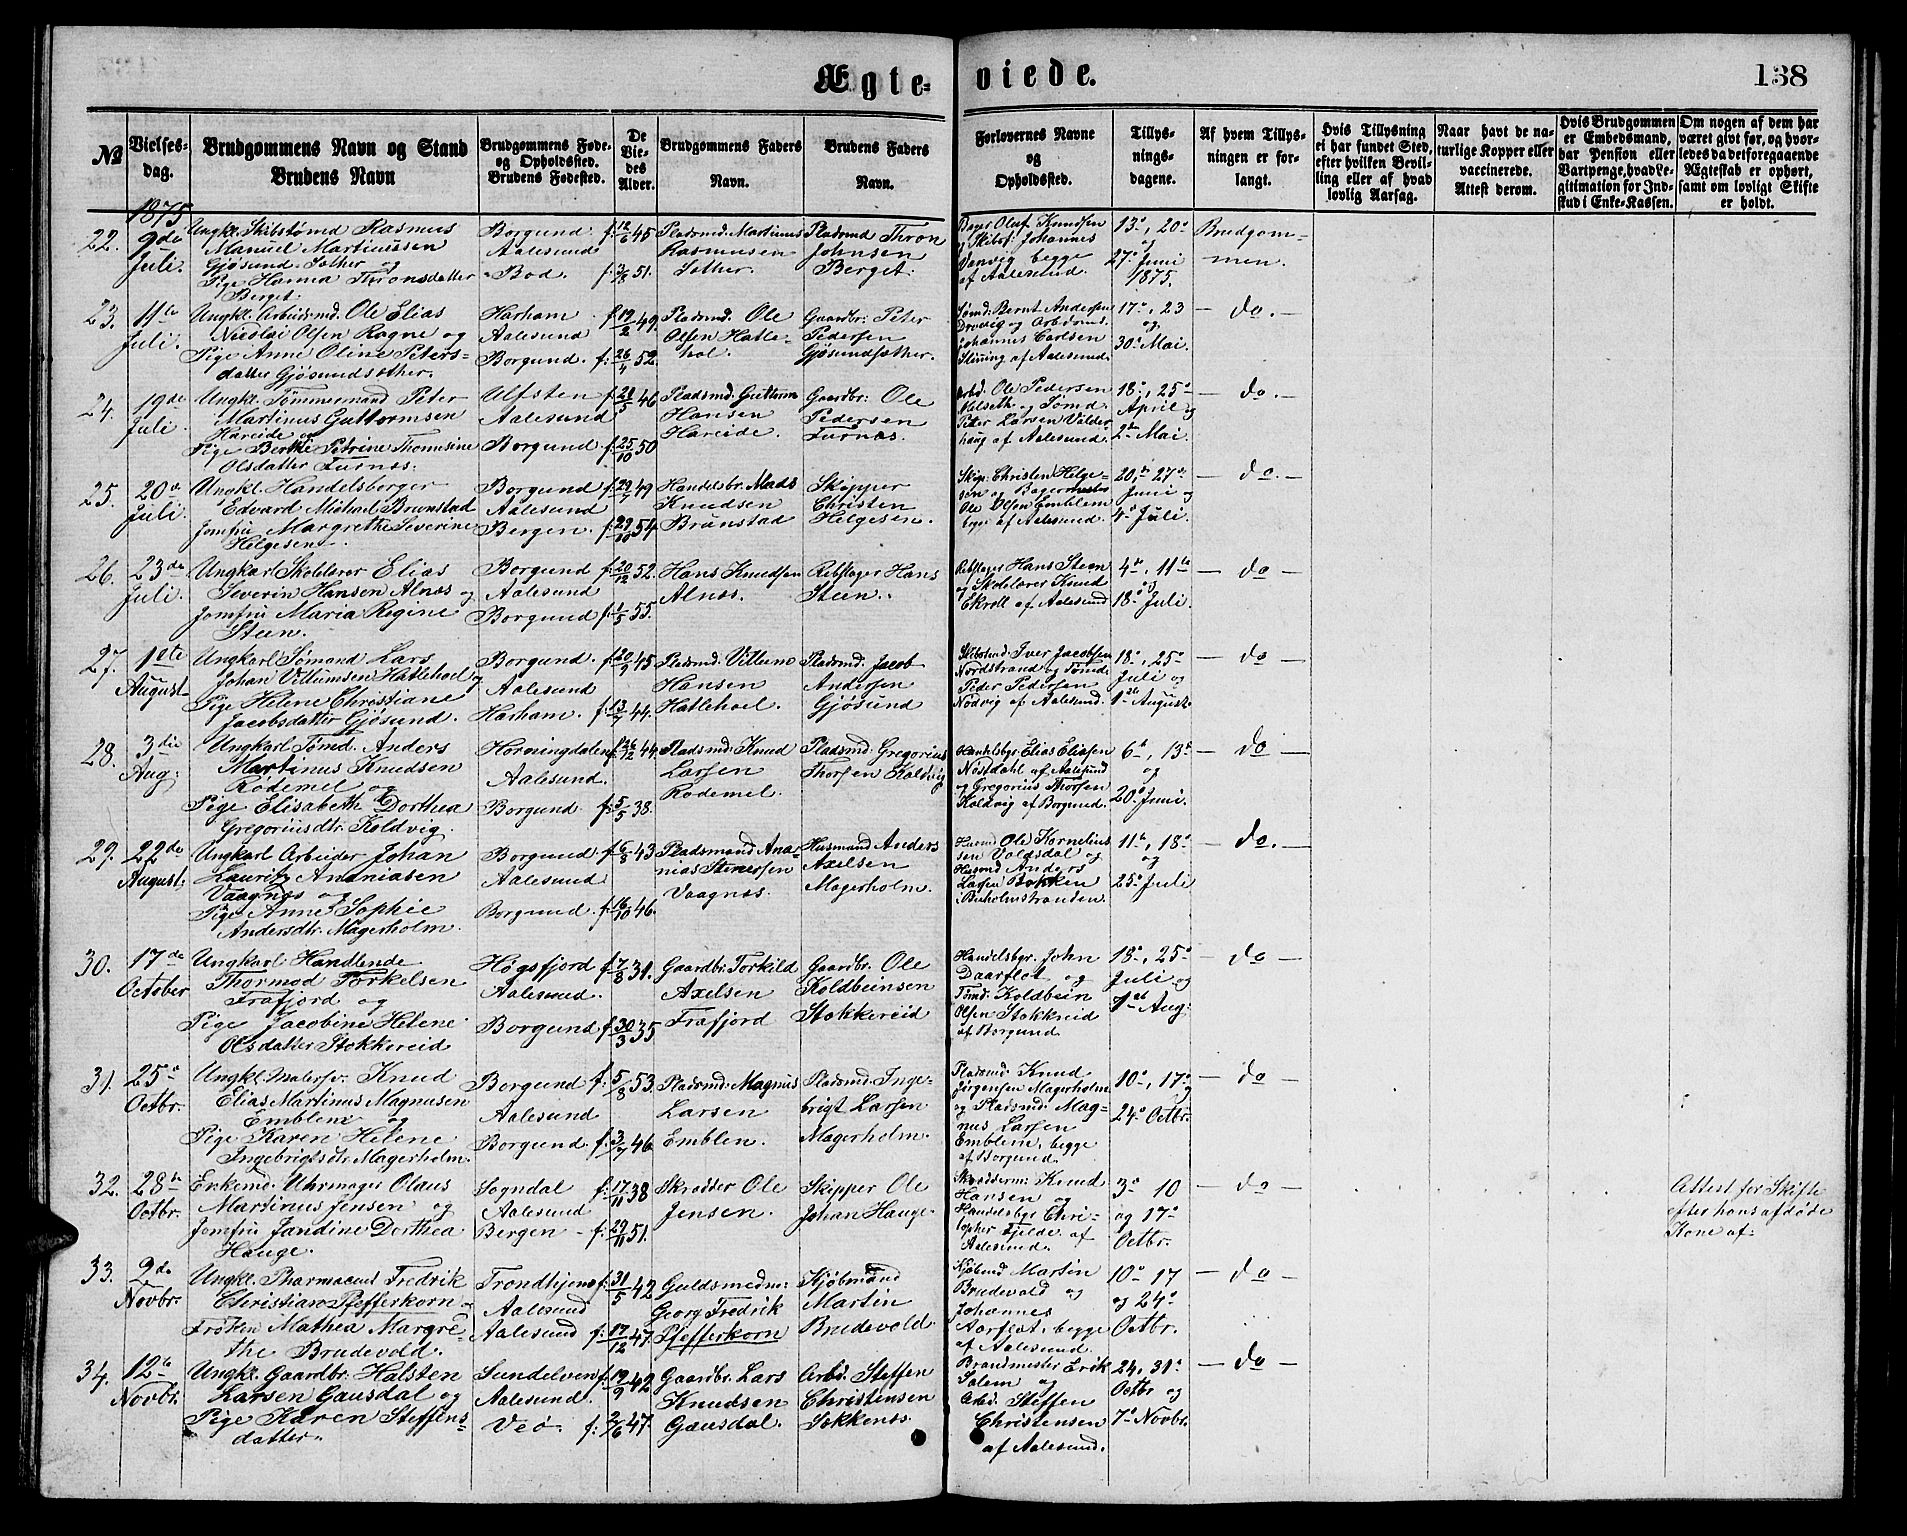 Ægte-viede.
138
No
Vielses-dag.
Brudgommens Navn og Stand
Brudens Navn
Brudgommens Føde- og Opholdssted.
Brudens Fødested.
De Viedes Alder.
Brudgommens Faders Navn.
Brudens Faders Navn.
Forlovernes Navne og Opholdssted.
Tillysningsdagene.
Af hvem Tillysningen er forlangt.
Hvis Tillysning ei har fundet Sted, efter hvilken Bevilling eller af hvad lovlig Aarsag.
Naar havt de naturlige Kopper eller vaccinerede. Attest derom.
Hvis Brudgommen er Embedsmand, har Pension eller Vartpenge, hvad Legitimation for Indskud i Enke-Kassen.
Om nogen af dem har været gift før, og hvorledes da det foregaaende Ægteskab er ophørt, samt om lovligt Skifte er holdt.
1875
22. 9de Juli.
Ungkl. Skibstømd Rasmus
Manuel Martinusen
Gjøsund Sæther og
Pige Hanna Thronsdatter
Berget.
Borgund f. 12/6 45
Aalesund
Bod f. 3/8 51.
Pladsmd. Martinus
Rasmusen
Sæther.
Pladsmd Thron
Johnsen
Berget.
Bager Oluf Knudsen
Johannes
begge
af Aalesund.
13de, 20de
og
27de Juni
1875.
Brudgom-
men.
23. 11te Juli.
Ungkl. Arbeidsmd. Ole Elias
Nicolai Olsen Rogne og
Pige Anne Oline Peters-
datter Gjøsundsæther.
Harham f. 19/2 49.
Aalesund
Borgund. f. 26/4 52.
Pladsmd. Ole
Olsen Hatle-
hol.
Gaardbr. Peter
Pedersen
Gjøsundsæther.
Tømd. Bernt Andersen
Johannes Carlsen
af Aalesund.
17de, 23
og
30de Mai.
do.
24. 19de Juli.
Ungkl. Tømmermand Peter
Martinus Guttormsen
Hareide og
Pige Berthe Petrine Thomasine
Olsdatter Furnæs.
Ulfsten f. 28/5 46
Aalesund
Borgund f. 25/10 50
Pladsmd. Guttorm
Hansen
Hareide.
Gaardbr. Ole
Pedersen
Furnæs.
Arbd. Ole Pedersen
Peter Larsen Valder-
haug af Aalesund.
18de, 25de
April og
2den Mai.
do.
25. 20de Juli.
Ungkl. Handelsberger
Edvard Michael Brunstad
Jomfru Margrethe Severine
Helgesen.
Borgund f. 29/7 49
Aalesund
Bergen f. 29/10 54
Handelsbr. Mads
Knudsen
Brunstad
Skipper
Christen
Helgesen.
Skip. Christen Helge-
sen og Bagermester
Ole Olsen Emblem
begge af Aalesund.
20de, 27de
Juni og
4de Juli.
do.
26. 23de Juli.
Ungkarl Skolelærer Elias
Severin Hansen Alnæs og
Jomfru Maria Regine
Steen.
Borgund f. 20/12 52.
Aalesund
Borgund f. 1/5 55.
Hans Knudsen
Alnæs.
Rebslager Hans
Steen.
Rebslager Hans Steen
og Skolelærer Knud
Ekroll af Aalesund
4de, 11te
og
18de Juli.
do
27. 1ste August
Ungkarl Sømand Lars
Johan Villumsen Hatlehoel og
Pige Helene Christiane
Jacobsdatter Gjøsund.
Borgund. f. 20/9 45.
Aalesund
Harham. f. 13/7 44.
Pladsmd. Villum
Hansen
Hatlehoel.
Pladsmd. Jacob
Andersen
Gjøsund
Skibstmd. Iver Jacobsen
Nordstrand og Tømd.
Peder Pedersen
Nodvig af Aalesund.
18de, 25de
Juli og
1ste August.
do
28. 3die Aug:
Ungkarl Tømd. Anders
Martinus Knudsen
Rødemel og
Pige Elisabeth Dorthea
Gregoriusdtr. Koldvig.
Horningdalen f. 26/12 44.
Aalesund.
Borgund f. 5/5 38.
Pladsmd. Knud
Larsen
Rødemel.
Pladsmd: Gregorius
Thorsen Koldvig
Handelsbgr. Elias Eliasen
Nøstdahl af Aalesund
og Gregorius Thorsen
Koldvig af Borgund.
6te, 13de
og
20de Juni.
do
29. 22de August:
Ungkarl Arbeider Johan
Lauritz Ananiasen
Vaagnæs og
Pige Anne Sophie
Andersdtr. Magerholm.
Borgund. f. 6/8 43
Aalesund
Borgund. f. 16/10 46.
Pladsmand Ana-
nias Stenersen
Vaagnæs.
Husmand Anders
Axelsen
Magerholm.
Husmd Ole Kornelius
sen Voldsdal og
Husmd Anders
Larsen Bakken
i Buholmstranden.
11te, 18de
og
25de Juli
do.
30. 17de October
Ungkarl Handlende
Thormod Torkelsen
Frafjord og
Pige Jacobine Helene
Olsdatter Stokkereid
Høgsfjord f. 7/8 31.
Aalesund.
Borgund f. 30/3 35
Gaardbr. Torkild
Axelsen
Frafjord
Gaardbr. Ole
Koldbeinsen
Stokkereid
Handelsbgr. John
Daarflot og
Tømd. Koldbein
Olsen Stokkreid
af Borgund
18de, 25de
Juli og
1ste Aug:
do
31. 25de Octbr.
Ungkl. Malersv. Knud
Elias Martinus Magnusen
Emblem og
Pige Karen Helene
Ingebrigtsdtr. Magerholm.
Borgund f. 5/8 53.
Aalesund
Borgund. f. 3/7 46.
Pladsmd. Magnus
Larsen
Emblem.
Pladsmd. Inge-
brigt Larsen
Magerholm.
Pladsmd. Knud
Jørgensen Magerholm
og Pladsmd. Mag-
nus Larsen
Emblem, begge
af Borgund.
10de, 17de og
24de Octbr.
do
32. 28de Octbr.
Enkemd. Uhrmager Olaus
Martinus Jensen og
Jomfru Jandine Dorthea
Hauge.
Sogndal f. 17/11 38
Aalesund
Bergen f. 29/11 51.
Skrædder Ole
Jensen.
Skipper Ole
Johan Hauge.
Skræddern: Knud
Hansen og
Handelsbgr Chri-
topher Fjelde af
Aalesund.
3de 10
og 17de
Octbr.
do
Attest for Skifte
efter hans afdøde
Kone af.
33. 9de Novbr.
Ungkl. Pharmaceut Fredrik
Christian Pfefferkorn og
Frøken Mathea Margre-
the Brudevold.
Trondhjem f. 31/5 42
Aalesund
Aalesund f. 17/12 47.
Guldsmedm:
Georg Fredrik
Pfefferkorn
Kjøbmand
Martin
Brudevold.
Kjøbmd Martin
Brudevold og
Johannes
Aarflot, begge
af Aalesund.
10de 17
og 24de
Octbr.
do
34. 12te Novbr.
Ungkl. Gaardbr. Halsten
Larsen Gausdal og
Pige Karen Steffens-
datter.
Sundelven f. 19/9 42
Aalesund.
Veø. f. 2/6 47.
Gaardbr. Lars
Knudsen
Gausdal.
Arbd. Steffen
Christensen
Sokkenæs.
Brandmester Erik
Salem og
Arbd. Steffen
Christensen
af Aalesund.
24, 31de
Octbr og
7de Novbr.
do